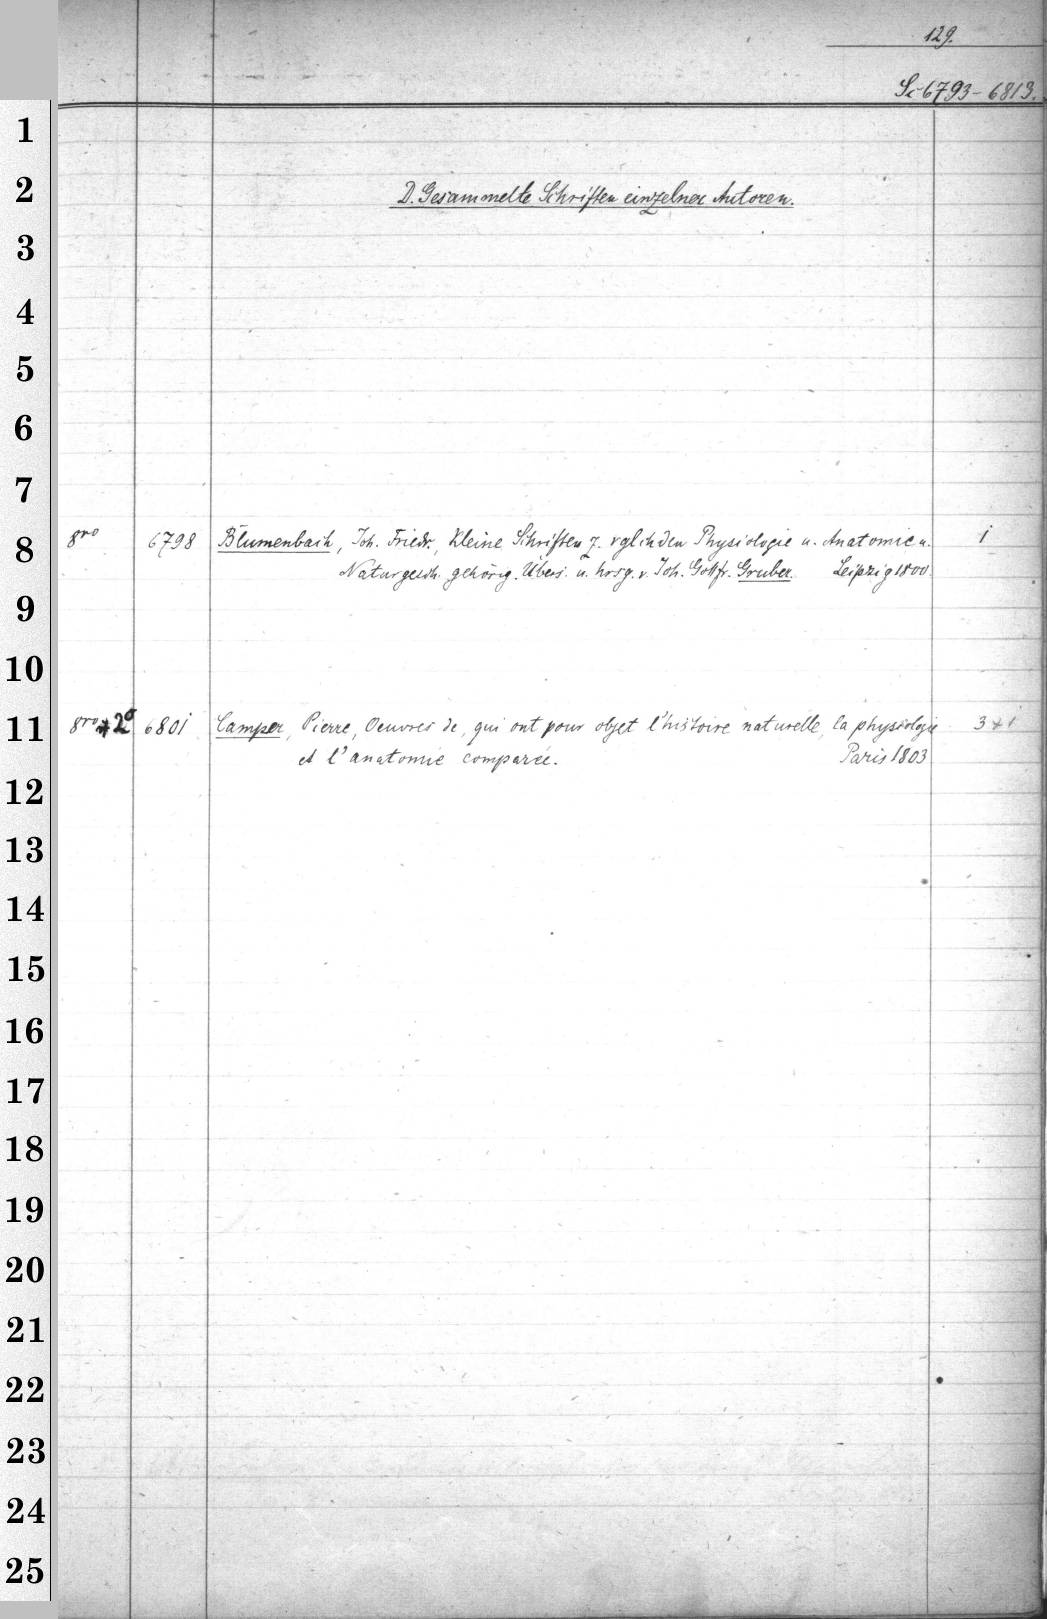 129.
Sc 6793-6813.
1
2
D. Gesammelte Schriften einzelner Autoren.
3
4
5
6
7
8
8vo 6798 Blumenbach, Joh. Friedr., Kleine Schriften z. vglchden Physiologie u. Anatomie u. 1
Naturgesch. gehörig. Übers. u. hrsg. v. Joh. Gottfr. Gruber. Leipzig 1800.
9
10
11
8vo + 2° 6801 Camper, Pierre, Oeuvres de, qui ont pour objet l'histoire naturelle, la physiologie 3 + 1
et l'anatomie comparée. Paris 1803
12
13
14
15
16
17
18
19
20
21
22
23
24
25